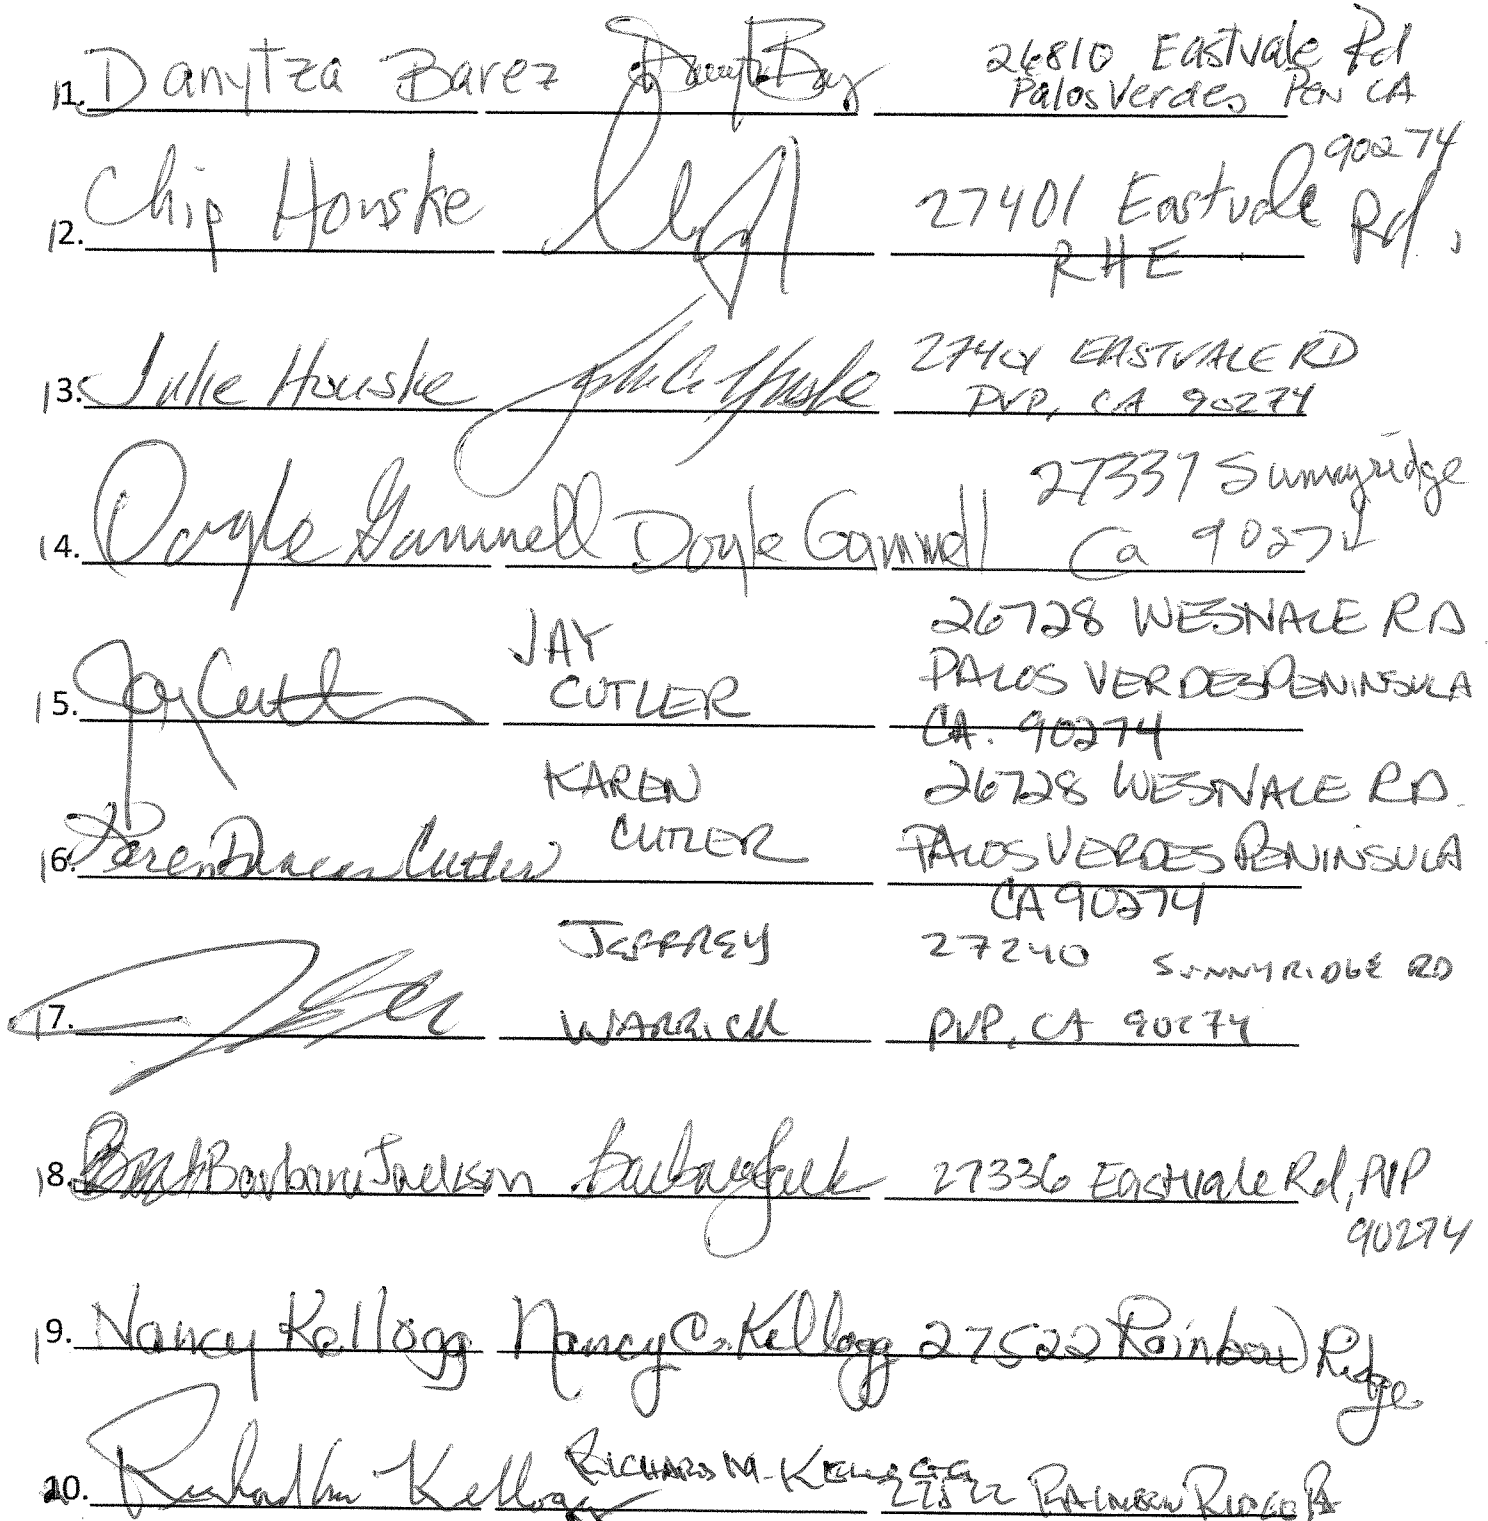 11. Danytza Barez 26810 Eastvale Rd
Palos Verdes Pen CA
90274
12. Chip Houske 27401 Eastvale Rd,
RHE
13. Julie Houske Julie Houske 27401 EASTVALE RD
PVP, CA 90274
14. Doyle Gammell Doyle Gammell 27337 Sunnyridge
Ca 90274
15. Jay Cutler JAY
CUTLER
26728 WESTVALE RD
PALOS VERDES PENINSULA
CA. 90274
16. Karen Duncan Cutler KAREN
CUTLER
26728 WESTVALE RD.
PALOS VERDES PENINSULA
CA 90274
17. JEFFREY
WARRICK
27240 SUNNYRIDGE RD
PVP, CA 90274
18. Barbara Jackson 27336 Eastvale Rd, PVP
90274
19. Nancy Kellogg Nancy C. Kellogg 27522 Rainbow Ridge
20. Richard M Kellogg RICHARD M. KELLOGG
27522 RAINBOW RIDGE Rd